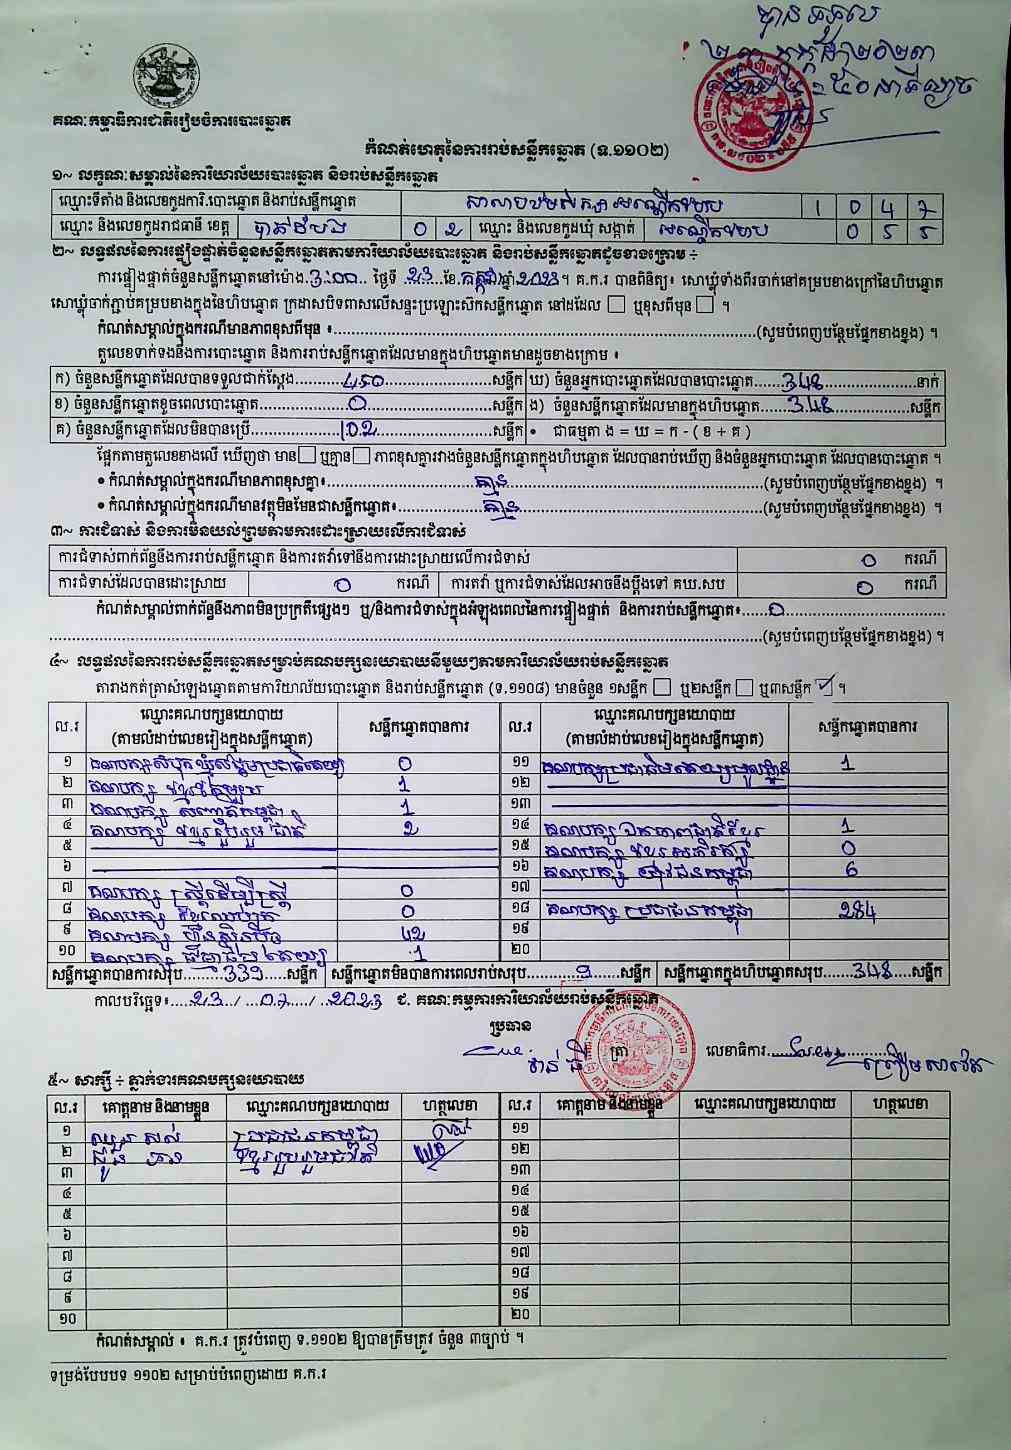 បានទទួល
២៣ កក្កដា ២០២៣
គណៈកម្មាធិការជាតិរៀបចំការបោះឆ្នោត
កំណត់ហេតុនៃការរាប់សន្លឹកឆ្នោត (ទ.១១០២)
១~ លក្ខណៈសម្គាល់នៃការិយាល័យបោះឆ្នោត និងរាប់សន្លឹកឆ្នោត
ឈ្មោះទីតាំង និងលេខកូដការិ.បោះឆ្នោត និងរាប់សន្លឹកឆ្នោត 1 0 4 7
ឈ្មោះ និងលេខកូដរាជធានី ខេត្ត បាត់ដំបង 0 2 ឈ្មោះ និងលេខកូដឃុំ សង្កាត់ 0 5 5
២~ លទ្ធផលនៃការផ្ទៀងផ្ទាត់ចំនួនសន្លឹកឆ្នោតតាមការិយាល័យបោះឆ្នោត និងរាប់សន្លឹកឆ្នោតដូចខាងក្រោម ÷
ការផ្ទៀងផ្ទាត់ចំនួនសន្លឹកឆ្នោតនៅម៉ោង.3:00.. ថ្ងៃទី .23...ខែ.កក្កដា.ឆ្នាំ.2023។ គ.ក.រ បានពិនិត្យ៖ សោឃ្លុំទាំងពីរចាក់នៅគម្របខាងក្រៅនៃហិបឆ្នោត
សោឃ្លុំចាក់ភ្ជាប់គម្របខាងក្នុងនៃហិបឆ្នោត ក្រដាសបិទពាសលើសន្ទះប្រឡោះស៊កសន្លឹកឆ្នោត នៅដដែល ☐ ឬខុសពីមុន ☐ ។
កំណត់សម្គាល់ក្នុងករណីមានភាពខុសពីមុន ៖........(សូមបំពេញបន្ថែមផ្នែកខាងខ្នង) ។
តួលេខទាក់ទងនឹងការបោះឆ្នោត និងការរាប់សន្លឹកឆ្នោតដែលមានក្នុងហិបឆ្នោតមានដូចខាងក្រោម ៖
ក) ចំនួនសន្លឹកឆ្នោតដែលបានទទួលជាក់ស្ដែង......450......សន្លឹក ឃ) ចំនួនអ្នកបោះឆ្នោតដែលបានបោះឆ្នោត......348......នាក់
ខ) ចំនួនសន្លឹកឆ្នោតខូចពេលបោះឆ្នោត......0......សន្លឹក ង) ចំនួនសន្លឹកឆ្នោតដែលមានក្នុងហិបឆ្នោត......348......សន្លឹក
គ) ចំនួនសន្លឹកឆ្នោតដែលមិនបានប្រើ......102......សន្លឹក • ជាធម្មតា ង = ឃ = ក - ( ខ + គ )
ផ្អែកតាមតួលេខខាងលើ ឃើញថា មាន ☐ ឬគ្មាន ☐ ភាពខុសគ្នារវាងចំនួនសន្លឹកឆ្នោតក្នុងហិបឆ្នោត ដែលបានរាប់ឃើញ និងចំនួនអ្នកបោះឆ្នោត ដែលបានបោះឆ្នោត ។
• កំណត់សម្គាល់ក្នុងករណីមានភាពខុសគ្នា៖......គ្មាន......(សូមបំពេញបន្ថែមផ្នែកខាងខ្នង) ។
• កំណត់សម្គាល់ក្នុងករណីមានវត្ថុមិនមែនជាសន្លឹកឆ្នោត៖......គ្មាន......(សូមបំពេញបន្ថែមផ្នែកខាងខ្នង) ។
៣~ ការជំទាស់ និងការមិនយល់ព្រមតាមការដោះស្រាយលើការជំទាស់
ការជំទាស់ពាក់ព័ន្ធនឹងការរាប់សន្លឹកឆ្នោត និងការតវ៉ាទៅនឹងការដោះស្រាយលើការជំទាស់ 0 ករណី
ការជំទាស់ដែលបានដោះស្រាយ 0 ករណី ការតវ៉ា ឬការជំទាស់ដែលអាចនឹងប្ដឹងទៅ គឃ.សប 0 ករណី
កំណត់សម្គាល់ពាក់ព័ន្ធនឹងភាពមិនប្រក្រតីផ្សេងៗ ឬ/និងការជំទាស់ក្នុងអំឡុងពេលនៃការផ្ទៀងផ្ទាត់ និងការរាប់សន្លឹកឆ្នោត៖......0......
......(សូមបំពេញបន្ថែមផ្នែកខាងខ្នង) ។
៤~ លទ្ធផលនៃការរាប់សន្លឹកឆ្នោតសម្រាប់គណបក្សនយោបាយនីមួយៗតាមការិយាល័យរាប់សន្លឹកឆ្នោត
តារាងកត់ត្រាសំឡេងឆ្នោតតាមការិយាល័យបោះឆ្នោត និងរាប់សន្លឹកឆ្នោត (ទ.១១០៨) មានចំនួន ១សន្លឹក ☐ ឬ២សន្លឹក ☐ ឬ៣សន្លឹក ☑ ។
ល.រ ឈ្មោះគណបក្សនយោបាយ សន្លឹកឆ្នោតបានការ ល.រ ឈ្មោះគណបក្សនយោបាយ សន្លឹកឆ្នោតបានការ
(តាមលំដាប់លេខរៀងក្នុងសន្លឹកឆ្នោត) (តាមលំដាប់លេខរៀងក្នុងសន្លឹកឆ្នោត)
១ គណបក្សសំបុកឃ្មុំសង្គមប្រជាធិបតេយ្យ 0 ១១ គណបក្សប្រជាធិបតេយ្យមូលដ្ឋាន 1
២ គណបក្ស ខ្មែរតែមួយ 1 ១២
៣ គណបក្ស សញ្ជាតិកម្ពុជា 1 ១៣
៤ គណបក្ស ខ្មែររួបរួមជាតិ 2 ១៤ គណបក្ស ឯកភាពជាតិខ្មែរ 1
៥ ១៥ គណបក្ស ខ្មែរអភិរក្ស 0
៦ ១៦ គណបក្ស យុវជនកម្ពុជា 6
៧ គណបក្ស ស្ត្រីដើម្បីស្ត្រី 0 ១៧
៨ គណបក្ស ខ្មែរឈប់ក្រ 0 ១៨ គណបក្ស ប្រជាជនកម្ពុជា 284
៩ គណបក្ស ហ៊្វុនស៊ិនប៉ិច 42 ១៩
១០ គណបក្ស ធម្មាធិបតេយ្យ 1 ២០
សន្លឹកឆ្នោតបានការសរុប......339......សន្លឹក សន្លឹកឆ្នោតមិនបានការពេលរាប់សរុប......9......សន្លឹក សន្លឹកឆ្នោតក្នុងហិបឆ្នោតសរុប......348......សន្លឹក
កាលបរិច្ឆេទ៖....23..../....07..../..2023 ជ. គណៈកម្មការការិយាល័យរាប់សន្លឹកឆ្នោត
ប្រធាន
ត្រា លេខាធិការ
៥~ សាក្សី ÷ ភ្នាក់ងារគណបក្សនយោបាយ
ល.រ គោត្តនាម និងនាមខ្លួន ឈ្មោះគណបក្សនយោបាយ ហត្ថលេខា ល.រ គោត្តនាម និងនាមខ្លួន ឈ្មោះគណបក្សនយោបាយ ហត្ថលេខា
១ ប្រជាជនកម្ពុជា ១១
២ ខ្មែររួបរួមជាតិ ១២
៣ ១៣
៤ ១៤
៥ ១៥
៦ ១៦
៧ ១៧
៨ ១៨
៩ ១៩
១០ ២០
កំណត់សម្គាល់ ៖ គ.ក.រ ត្រូវបំពេញ ទ.១១០២ ឱ្យបានត្រឹមត្រូវ ចំនួន ៣ច្បាប់ ។
ទម្រង់បែបបទ ១១០២ សម្រាប់បំពេញដោយ គ.ក.រ